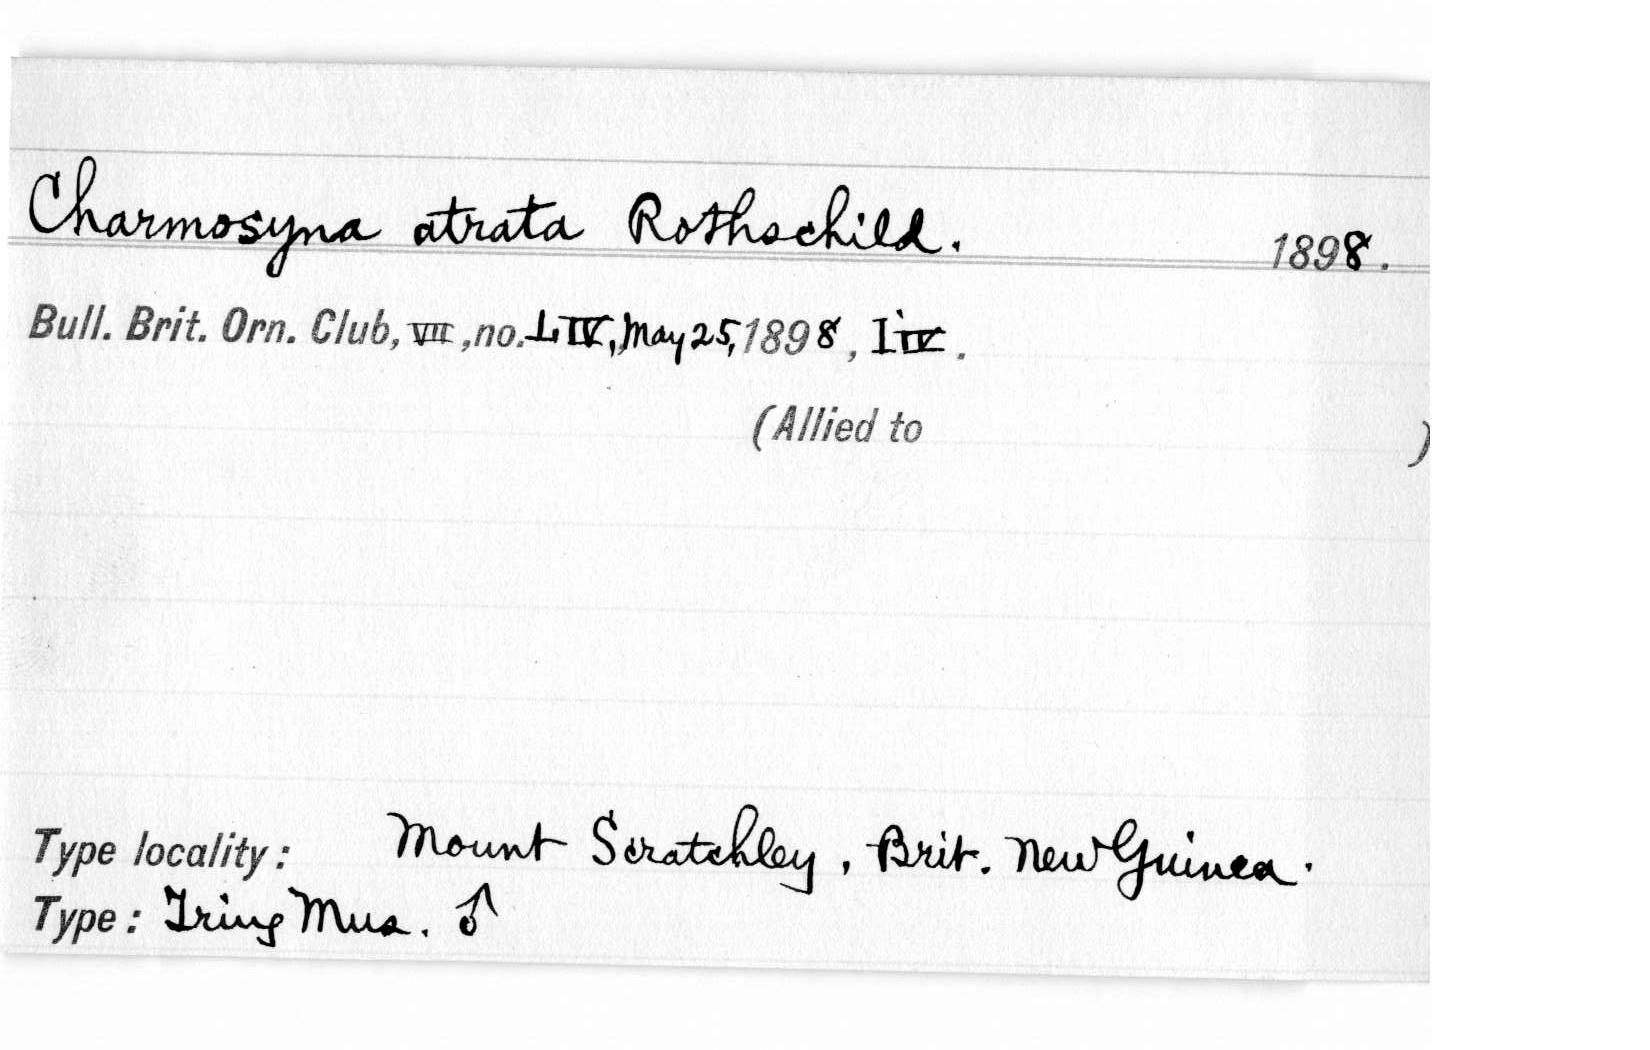 Charmosyna atrata Rothschild. 1898.
Bull. Brit. Orn. Club, VII, no. LIV, May 25, 1898,
(Allied to )
Type locality: Mount Scratchley, Brit. New Guinea.
Type: Tring Mus. ♂